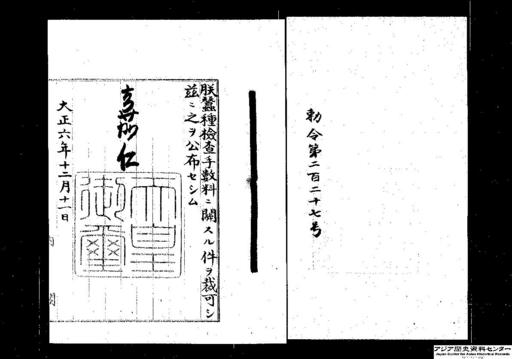 勅令第二百二十七号
朕蠶種検査手數料ニ關スル件ヲ裁可シ
茲ニ之ヲ公布セシム
嘉仁
天皇御璽
大正六年十二月十一日
内閣
アジア歴史資料センター
Japan Center for Asian Historical Records